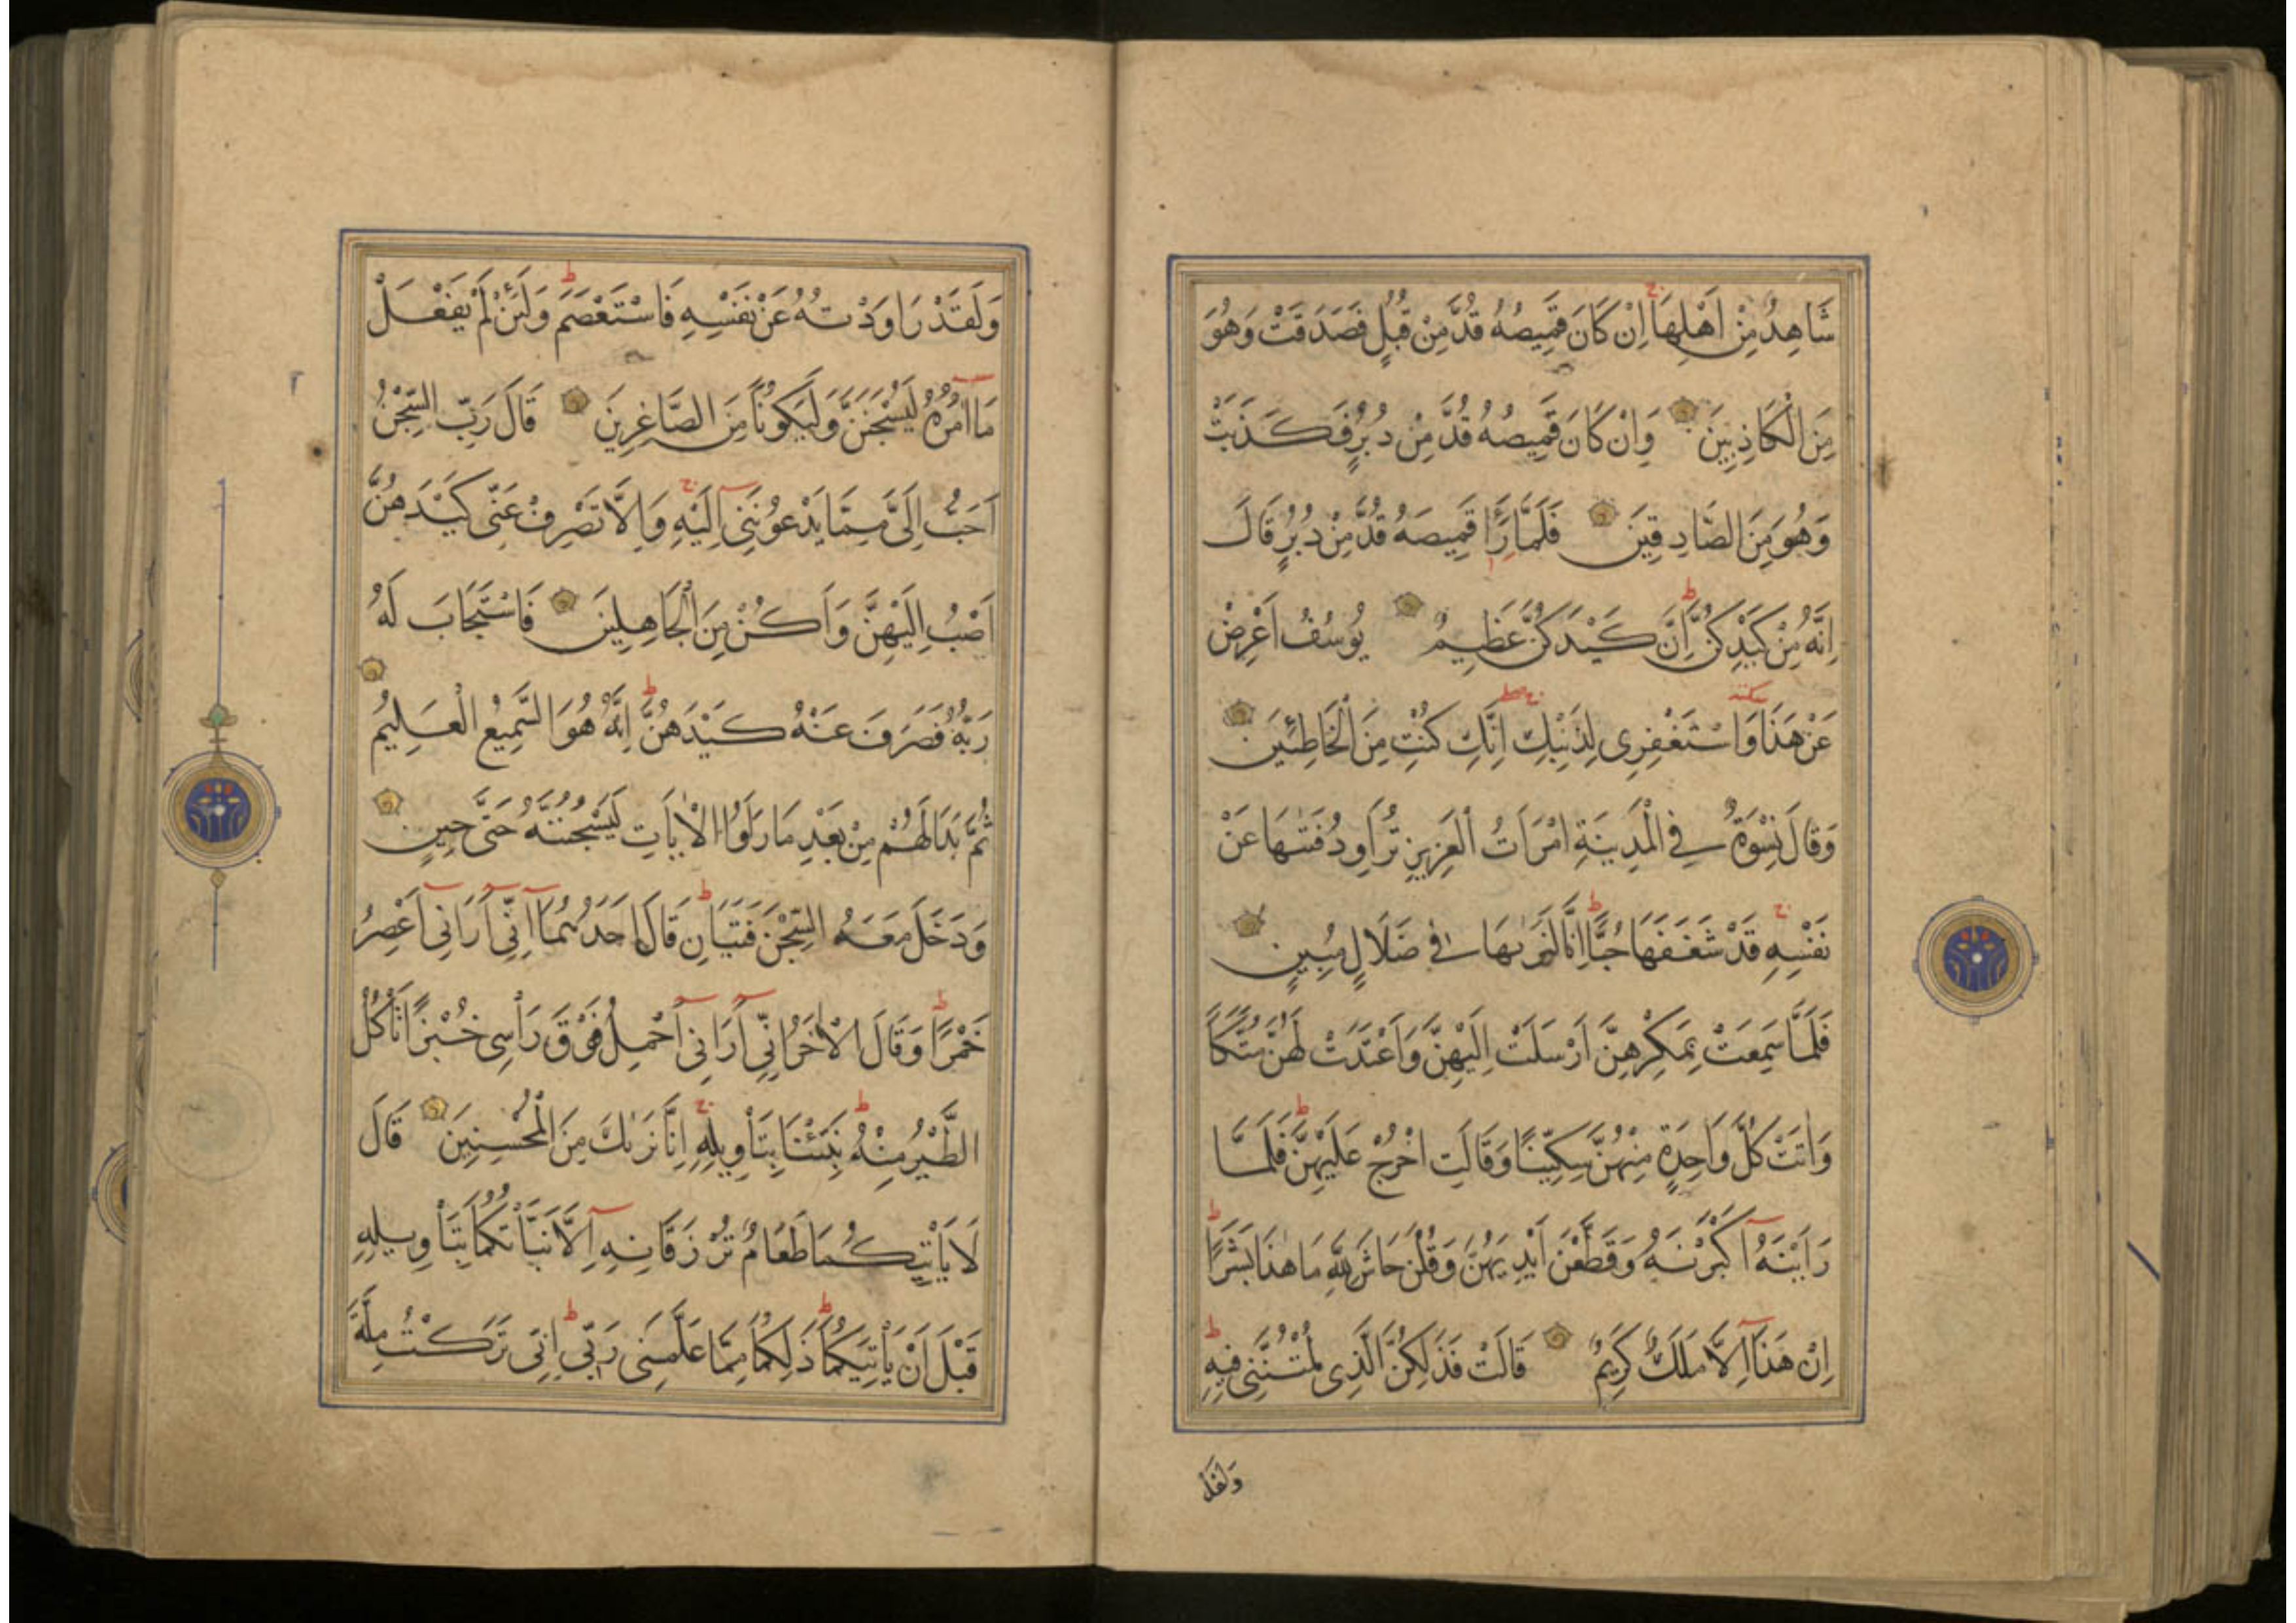 شَاهِدٌ مِنْ اَهْلِهَا اِنْ كَانَ قَمِيصُهُ قُدَّ مِنْ قُبُلٍ فَصَدَقَتْ وَهُوَ
مِنَ الْكَاذِبِينَ وَاِنْ كَانَ قَمِيصُهُ قُدَّ مِنْ دُبُرٍ فَكَذَبَتْ
وَهُوَ مِنَ الصَّادِقِينَ فَلَمَّا رَاَ قَمِيصَهُ قُدَّ مِنْ دُبُرٍ قَالَ
اِنَّهُ مِنْ كَيْدِكُنَّ اِنَّ كَيْدَكُنَّ عَظِيمٌ يُوسُفُ اَعْرِضْ
عَنْ هَذَا وَاسْتَغْفِرِى لِذَنْبِكِ اِنَّكِ كُنْتِ مِنَ الْخَاطِئِينَ
وَقَالَ نِسْوَةٌ فِي الْمَدِينَةِ امْرَاَتُ الْعَزِيزِ تُرَاوِدُ فَتٰىهَا عَنْ
نَفْسِهِ قَدْ شَغَفَهَا حُبًّا اِنَّا لَنَرٰىهَا فِي ضَلَالٍ مُبِينٍ
فَلَمَّا سَمِعَتْ بِمَكْرِهِنَّ اَرْسَلَتْ اِلَيْهِنَّ وَاَعْتَدَتْ لَهُنَّ مُتَّكَاً
وَاٰتَتْ كُلَّ وَاحِدَةٍ مِنْهُنَّ سِكِّينًا وَقَالَتِ اخْرُجْ عَلَيْهِنَّ فَلَمَّا
رَاَيْنَهُ اَكْبَرْنَهُ وَقَطَّعْنَ اَيْدِيَهُنَّ وَقُلْنَ حَاشَ لِلّٰهِ مَا هٰذَا بَشَرًا
اِنْ هَذَا اِلَّا مَلَكٌ كَرِيمٌ قَالَتْ فَذٰلِكُنَّ الَّذِى لُمْتُنَّنِى فِيهِ
وَلَقَدْ
وَلَقَدْ رَاوَدْتُهُ عَنْ نَفْسِهِ فَاسْتَعْصَمَ وَلَئِنْ لَمْ يَفْعَلْ
مَا اٰمُرُهُ لَيُسْجَنَنَّ وَلَيَكُونًا مِنَ الصَّاغِرِينَ قَالَ رَبِّ السِّجْنُ
اَحَبُّ اِلَىَّ مِمَّا يَدْعُونَنِى اِلَيْهِ وَاِلَّا تَصْرِفْ عَنِّى كَيْدَهُنَّ
اَصْبُ اِلَيْهِنَّ وَاَكُنْ مِنَ الْجَاهِلِينَ فَاسْتَجَابَ لَهُ
رَبُّهُ فَصَرَفَ عَنْهُ كَيْدَهُنَّ اِنَّهُ هُوَ السَّمِيعُ الْعَلِيمُ
ثُمَّ بَدَا لَهُمْ مِنْ بَعْدِ مَا رَاَوُا الْاٰيَاتِ لَيَسْجُنُنَّهُ حَتَّى حِينٍ
وَدَخَلَ مَعَهُ السِّجْنَ فَتَيَانِ قَالَ اَحَدُهُمَا اِنِّى اَرَانِى اَعْصِرُ
خَمْرًا وَقَالَ الْاٰخَرُ اِنِّى اَرَانِى اَحْمِلُ فَوْقَ رَاْسِى خُبْزًا تَاْكُلُ
الطَّيْرُ مِنْهُ نَبِّئْنَا بِتَاْوِيلِهِ اِنَّا نَرٰىكَ مِنَ الْمُحْسِنِينَ قَالَ
لَا يَاْتِيكُمَا طَعَامٌ تُرْزَقَانِهِ اِلَّا نَبَّاْتُكُمَا بِتَاْوِيلِهِ
قَبْلَ اَنْ يَاْتِيَكُمَا ذٰلِكُمَا مِمَّا عَلَّمَنِى رَبِّى اِنِّى تَرَكْتُ مِلَّةَ